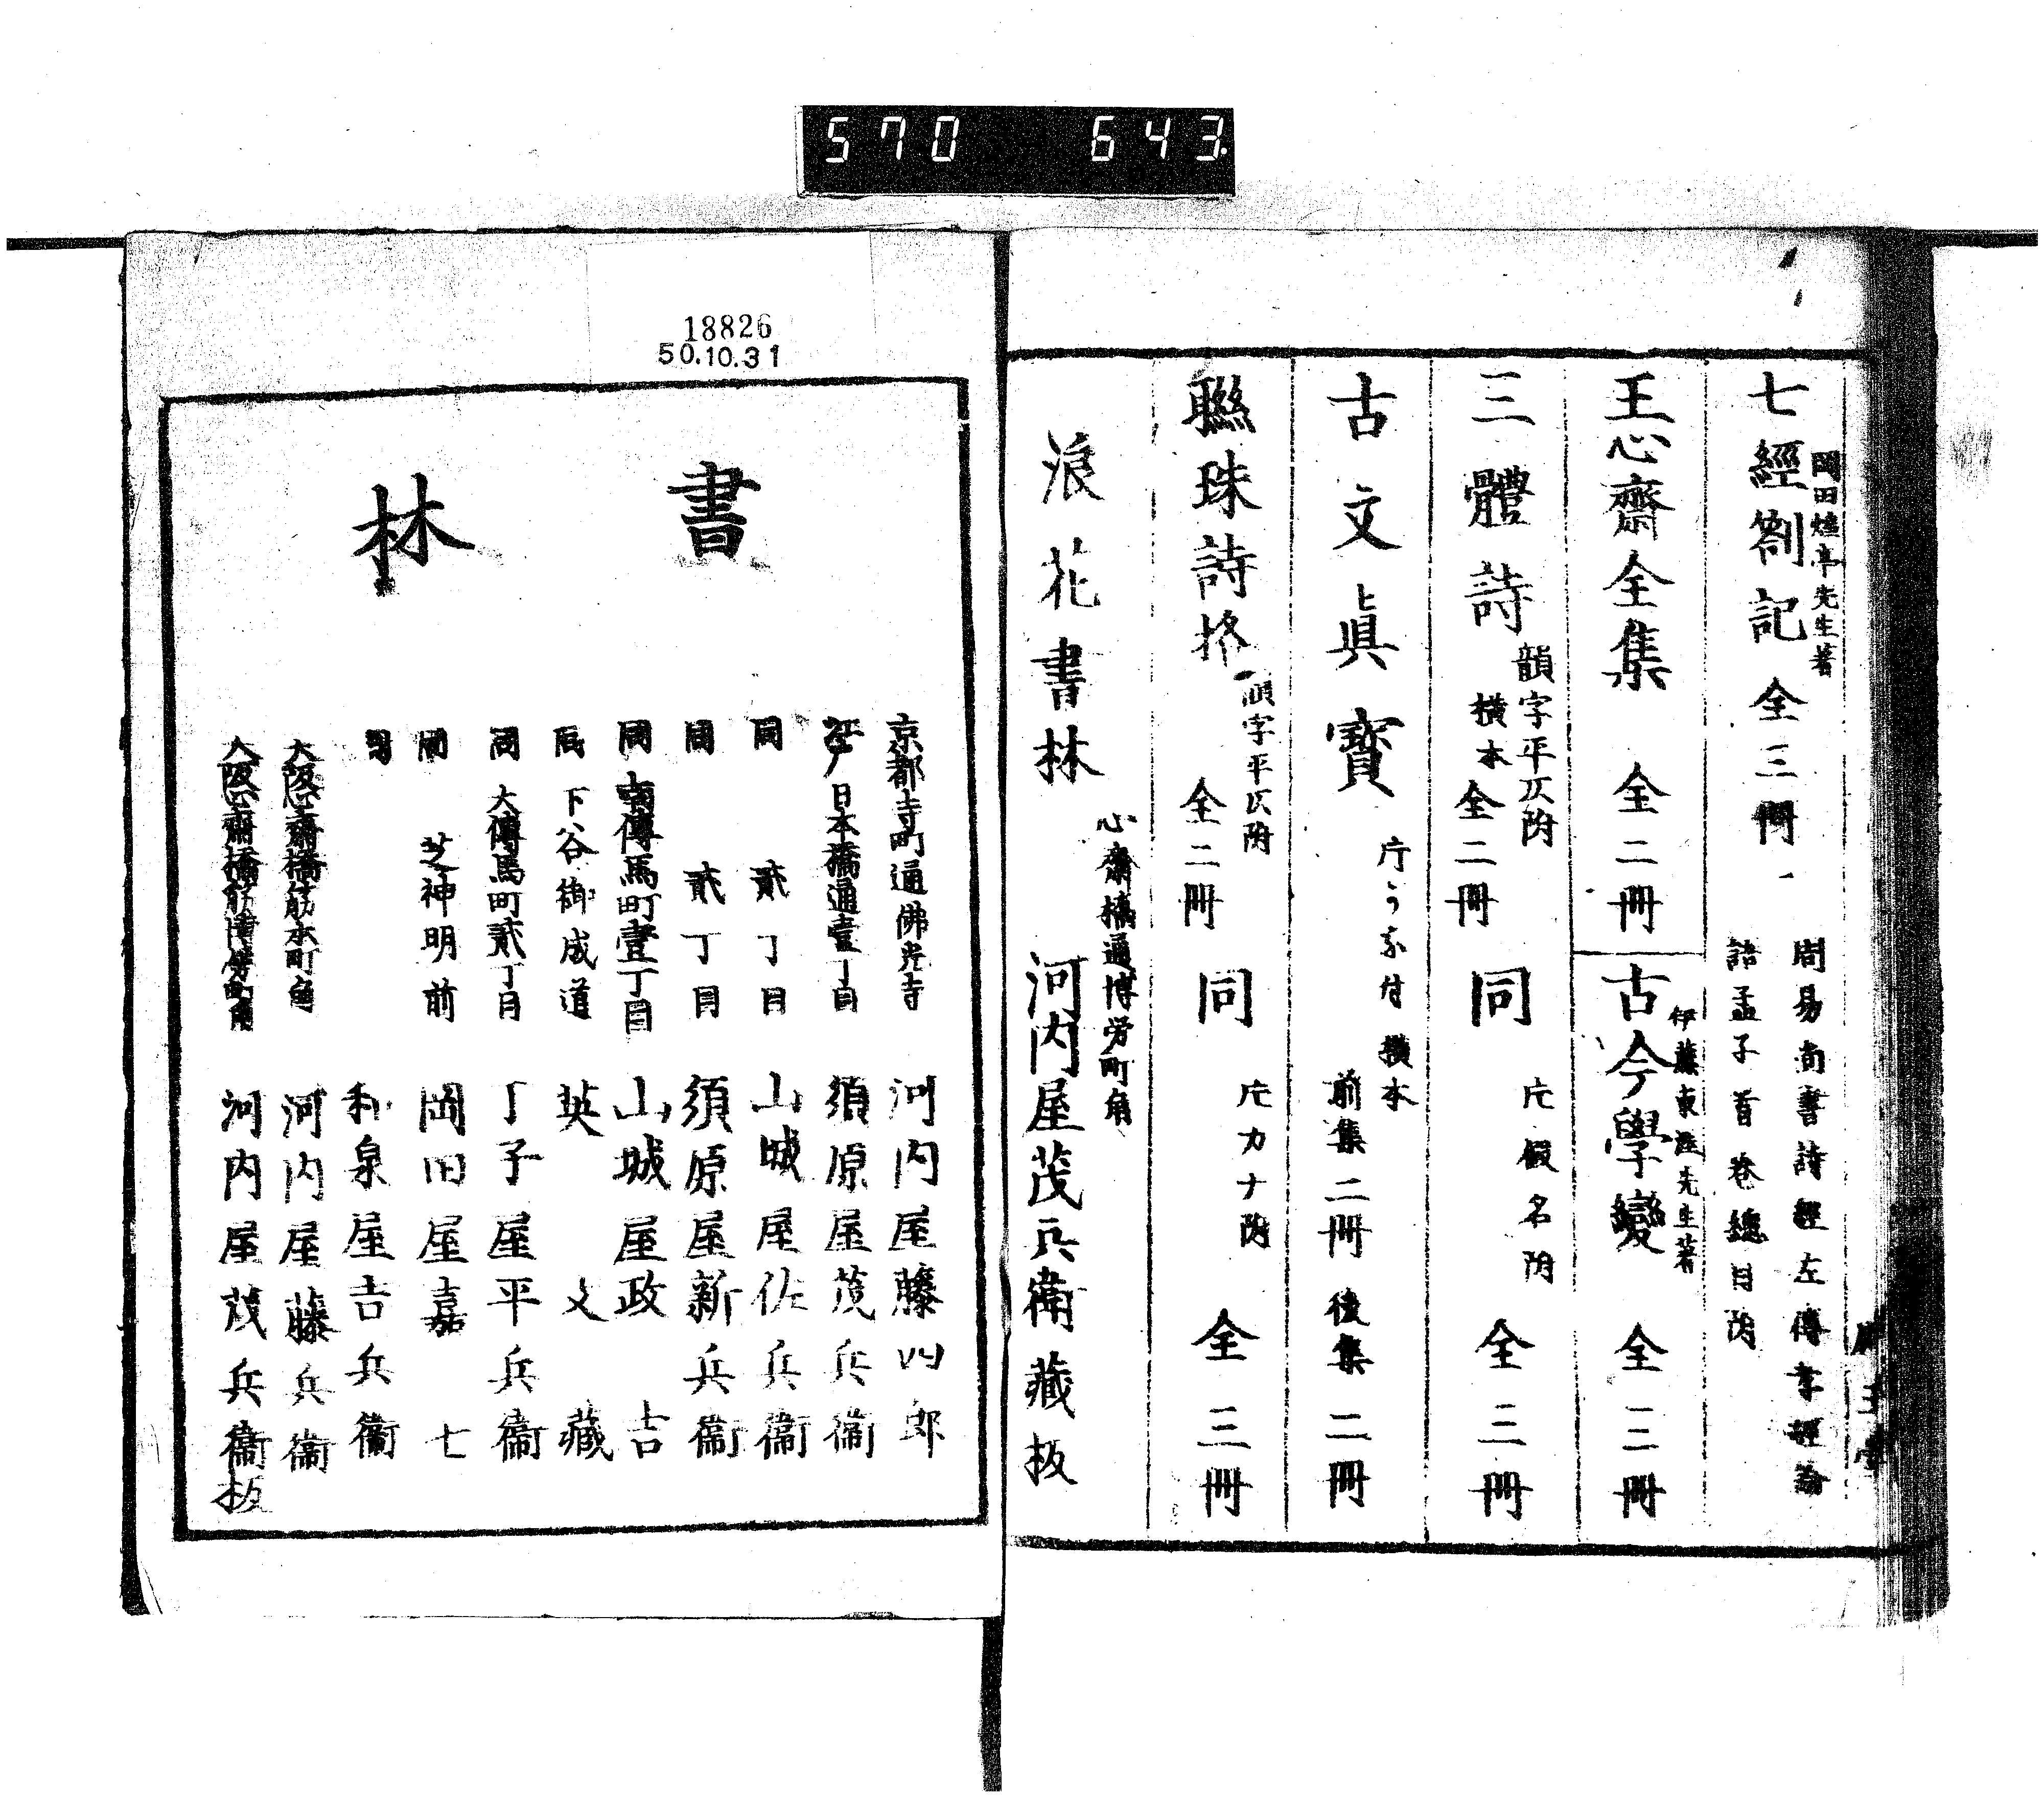 570 643.
岡田煌亭先生著
七經劄記 全三冊
周易尚書詩經左傳孝經論
語孟子首卷總目附
王心齋全集 全二冊
伊藤東涯先生著
古今學變 全三冊
三體詩
韻字平仄附
横本
全二冊
同 片假名附 全三冊
古文眞寶
片うら付 横本
前集二冊 後集二冊
聯珠詩格
韻字平仄附
全二冊
同 片カナ附 全三冊
浪花書林
心齋橋通博労町角
河内屋茂兵衛藏板
18826
50.10.31
書林
京都寺町通佛光寺 河内屋藤四郎
江戸日本橋通壹丁目 須原屋茂兵衛
同 貳丁目 山城屋佐兵衛
同 貳丁目 須原屋新兵衛
同 南傳馬町壹丁目 山城屋政吉
同 下谷御成道 英文藏
同 大傳馬町貳丁目 丁子屋平兵衛
同 芝神明前 岡田屋嘉七
同 和泉屋吉兵衛
大阪心齋橋筋本町角 河内屋藤兵衛
大阪心齋橋筋博労町角 河内屋茂兵衛板